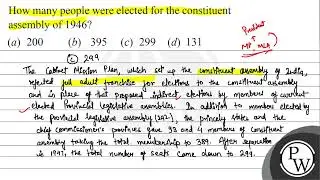 How many people were elected for the constituent
assembly of 1946?
(a) 200 (b) 395 (c) 299 (d) 131
President
MP, MLA
(c) 299
The Cabinet Mission Plan, which set up the constituent assembly of India,
rejected full adult franchise for elections to the constituent assembly
and in place of that proposed indirect elections by members of current
elected Provincial legislative assemblies. In addition to members elected by
the provincial legislative assembly (292), the princely states and the
chief commissioner's provinces gave 93 and 4 members of constituent
assembly taking the total membership to 389. After separation
in 1947, the total number of seats came down to 299.
PW